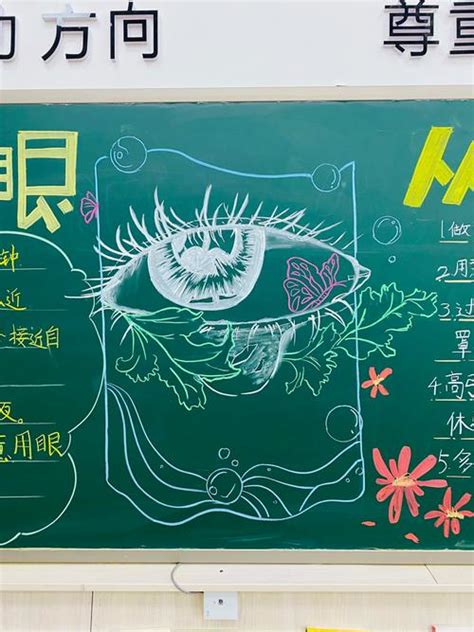 方向
尊重
眼
从
钟
近
接近自
用眼
1.做
2.用
3.过
罩
4.高
休
5.多